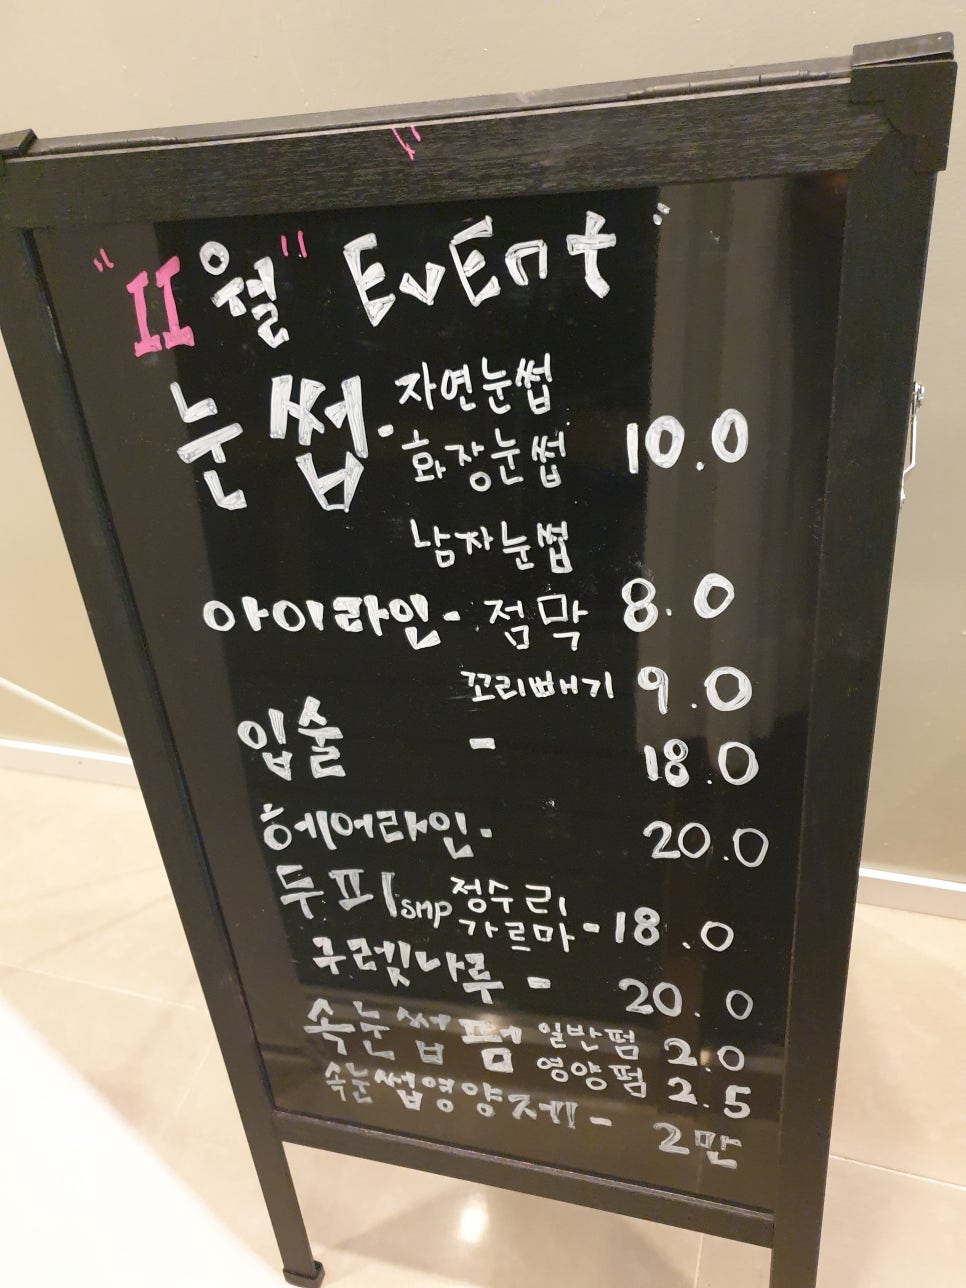 "11월" EvEnt
눈썹. 자연눈썹
화장눈썹 10.0
남자눈썹
아이라인 - 점막 8.0
꼬리빼기 9.0
입술 - 18.0
헤어라인. 20.0
두피 SMP 정수리
가르마 - 18.0
구렛나루 - 20.0
속눈썹펌 일반펌 2.0
영양펌 2.5
속눈썹영양제 - 2만